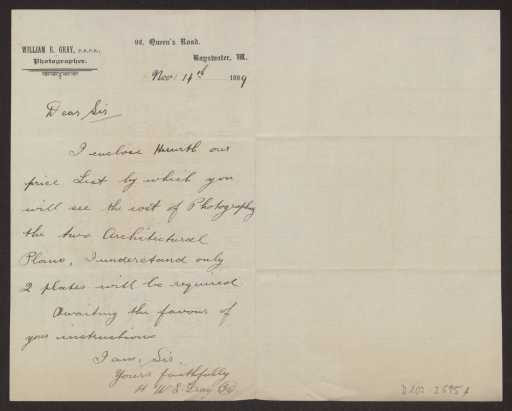 WILLIAM E. GRAY, F.R.P.S.,
Photographer.
92, Queen's Road,
Bayswater, W.
Nov: 14th 1889
Dear Sir
I enclose Herewith our
price List by which you
will see the cost of Photography
the two Architectural
Plans, I understand only
2 plates will be required
Awaiting the favour of
your instructions
I am, Sir
Yours faithfully
W. E. Gray